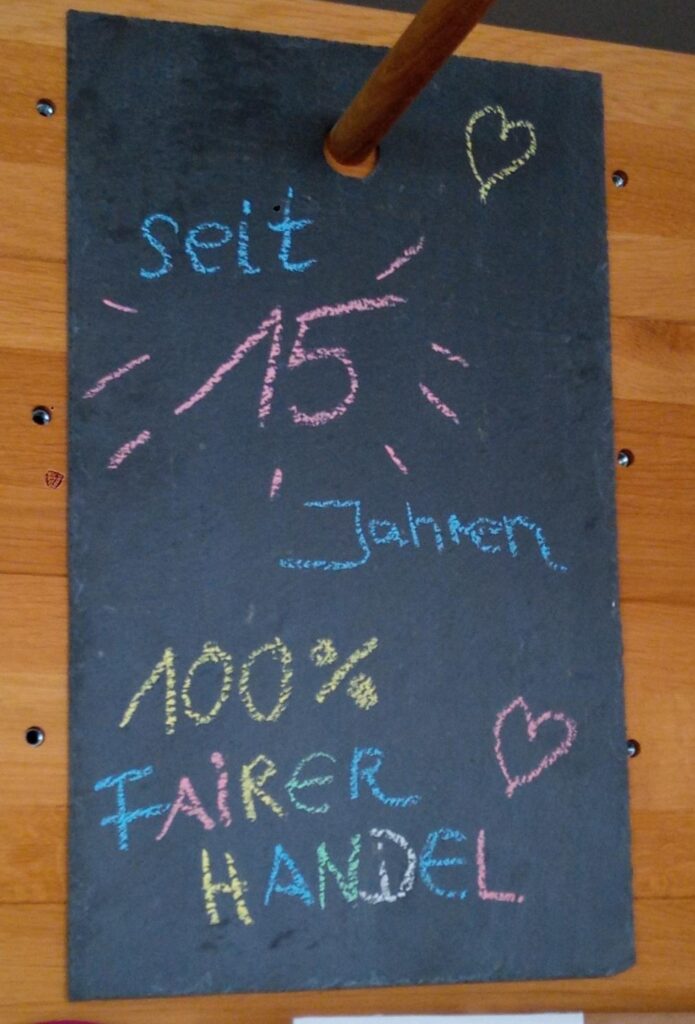 seit
15
Jahren
100%
FAiRER
HANDEL